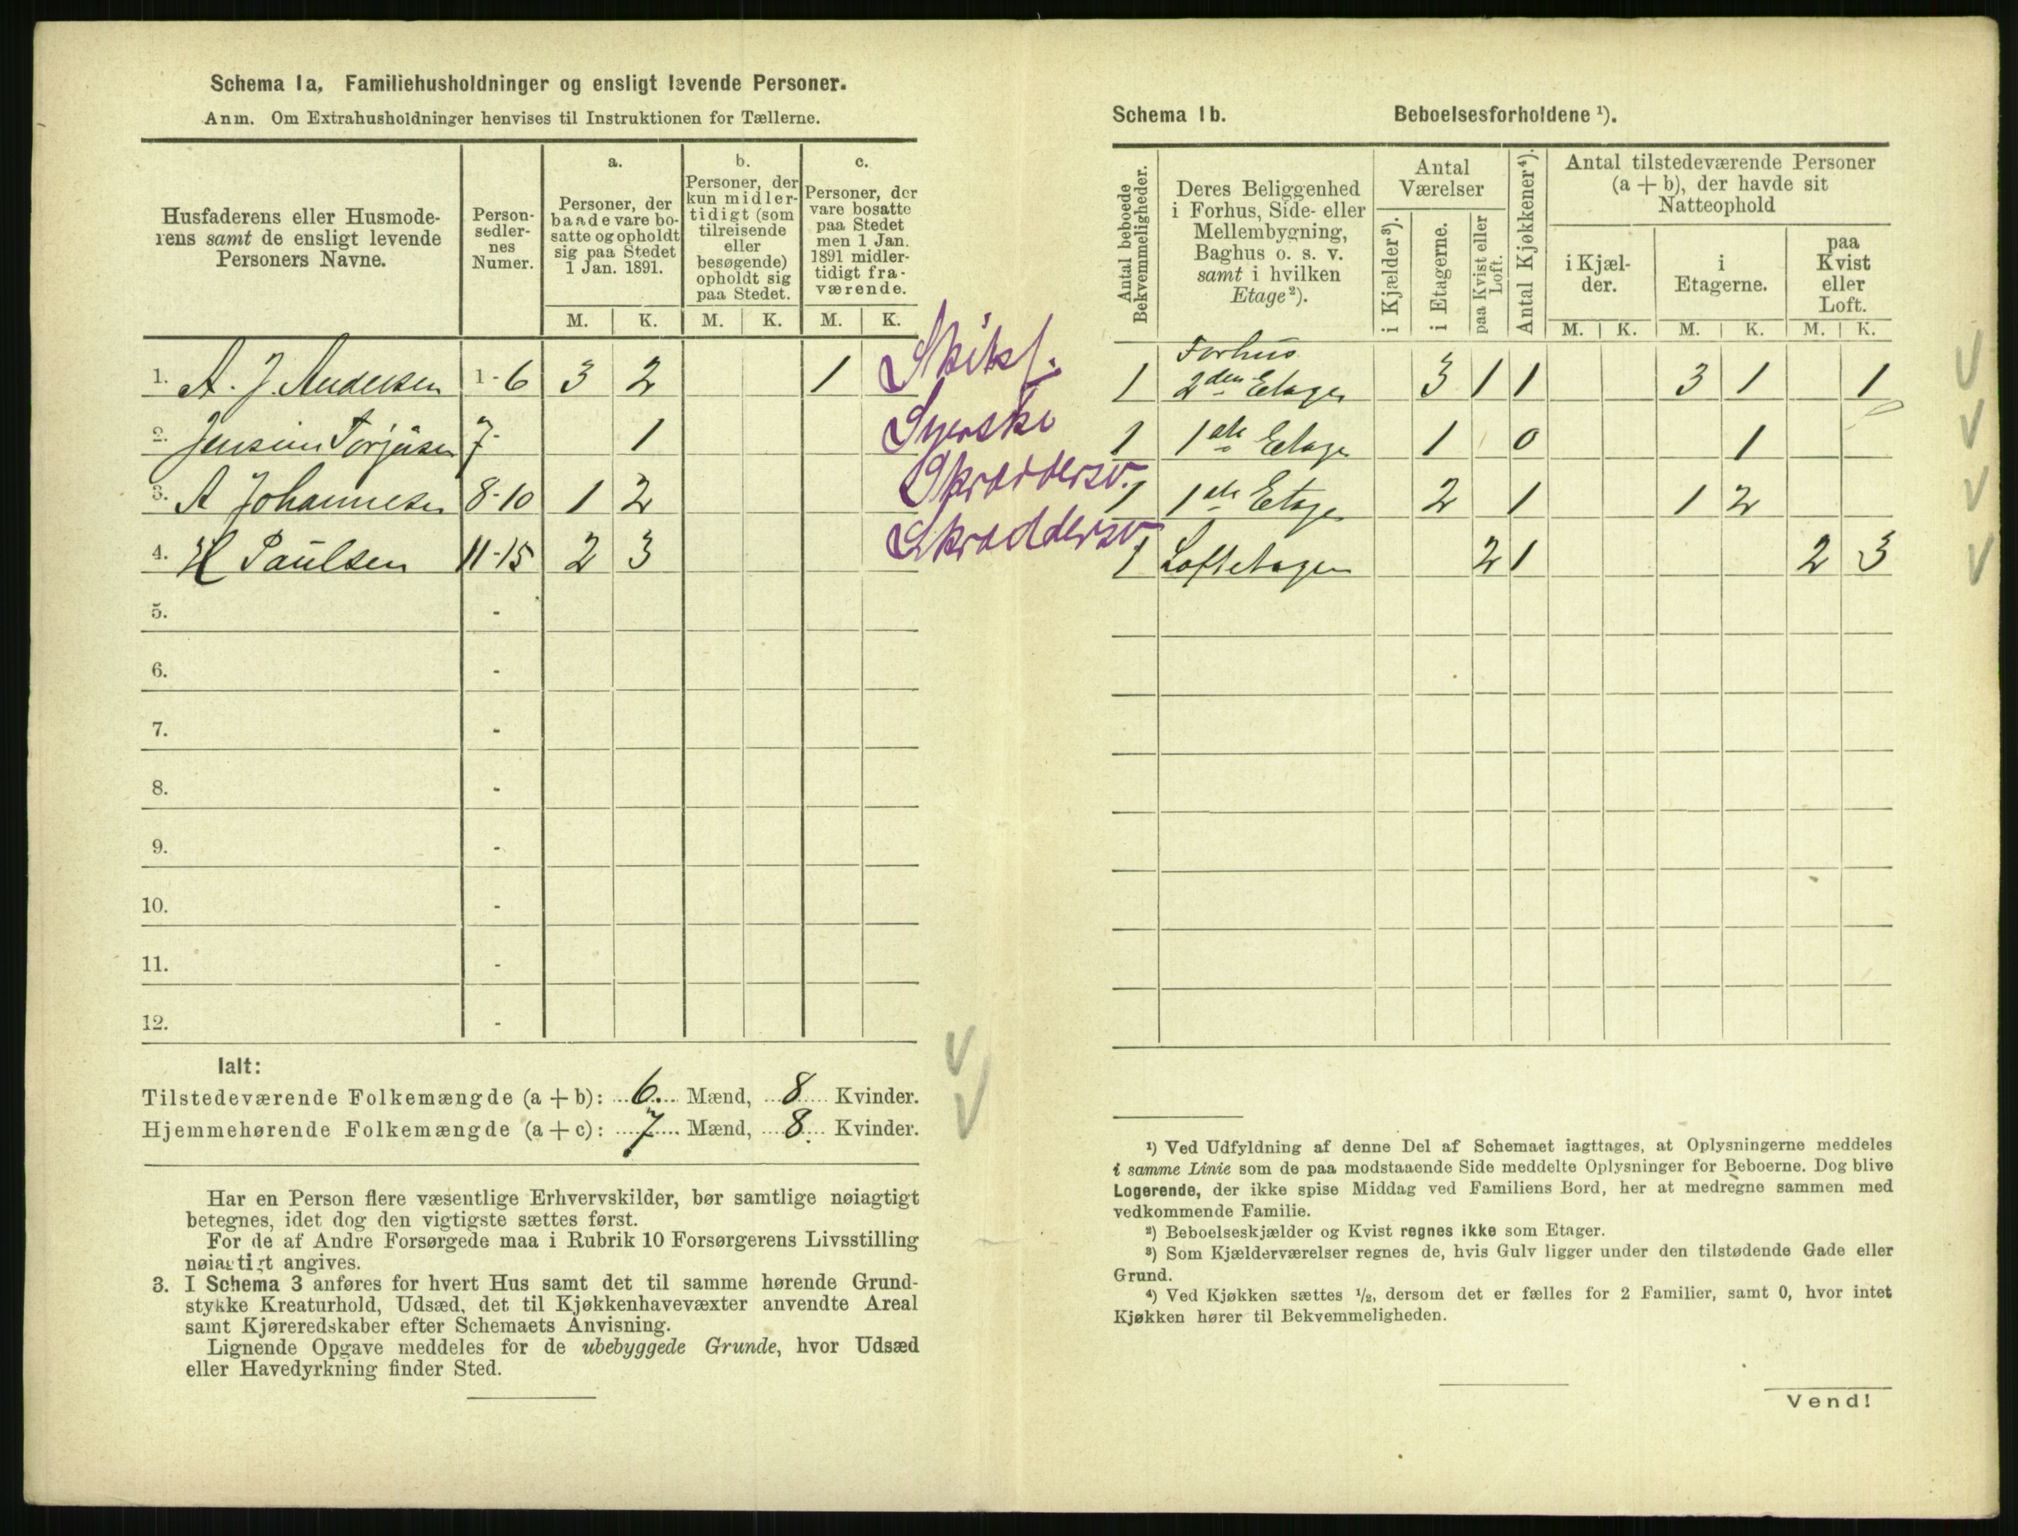 Schema 1a, Familiehusholdninger og ensligt levende Personer.
Anm. Om Extrahusholdninger henvises til Instruktionen for Tællerne.
Husfaderens eller Husmode-
rens samt de ensligt levende
Personers Navne.
Person-
sedler-
nes
Numer.
a.
Personer, der
baade vare bo-
satte og opholdt
sig paa Stedet
1 Jan. 1891.
b.
Personer, der
kun midler-
tidigt (som
tilreisende
eller
besøgende)
opholdt sig
paa Stedet.
c.
Personer, der
vare bosatte
paa Stedet
men 1 Jan.
1891 midler-
tidigt fra-
værende.
M. K. M. K. M. K.
1. A. J. Andersen 1-6 3 2 1
2. Torjusen 7- 1 Syerske
3. A Johannesen 8-10 1 2 Skræddersv.
4. H Paulsen 11-15 2 3 Skræddersv
5. -
6. -
7. -
8. -
9. -
10. -
11. -
12. -
Ialt:
Tilstedeværende Folkemængde (a + b): 6. Mænd, 8 Kvinder.
Hjemmehørende Folkemængde (a + c): 7 Mænd, 8. Kvinder.
Har en Person flere væsentlige Erhvervskilder, bør samtlige nøiagtigt
betegnes, idet dog den vigtigste sættes først.
For de af Andre Forsørgede maa i Rubrik 10 Forsørgerens Livsstilling
nøiagtigt angives.
3. I Schema 3 anføres for hvert Hus samt det til samme hørende Grund-
stykke Kreaturhold, Udsæd, det til Kjøkkenhavevæxter anvendte Areal
samt Kjøreredskaber efter Schemaets Anvisning.
Lignende Opgave meddeles for de ubebyggede Grunde, hvor Udsæd
eller Havedyrkning finder Sted.
Schema 1b. Beboelsesforholdene ¹).
Antal beboede
Bekvemmeligheder.
Deres Beliggenhed
i Forhus, Side- eller
Mellembygning,
Baghus o. s. v.
samt i hvilken
Etage²).
Antal
Værelser
i Kjælder³).
i Etagerne.
paa Kvist eller
Loft.
Antal Kjøkkener⁴).
Antal tilstedeværende Personer
(a + b), der havde sit
Natteophold
i Kjæl-
der.
i
Etagerne.
paa
Kvist
eller
Loft.
M. K. M. K. M. K.
Forhus
1 2den Etage 3 1 1 3 1 1
1 1ste Etage 1 0 1
1 1ste Etage 2 1 1 2
1 Loftetagen 2 1 2 3
¹) Ved Udfyldning af denne Del af Schemaet iagttages, at Oplysningerne meddeles
i samme Linie som de paa modstaaende Side meddelte Oplysninger for Beboerne. Dog blive
Logerende, der ikke spise Middag ved Familiens Bord, her at medregne sammen med
vedkommende Familie.
²) Beboelseskjælder og Kvist regnes ikke som Etager.
³) Som Kjælderværelser regnes de, hvis Gulv ligger under den tilstødende Gade eller
Grund.
⁴) Ved Kjøkken sættes ½, dersom det er fælles for 2 Familier, samt 0, hvor intet
Kjøkken hører til Bekvemmeligheden.
Vend!